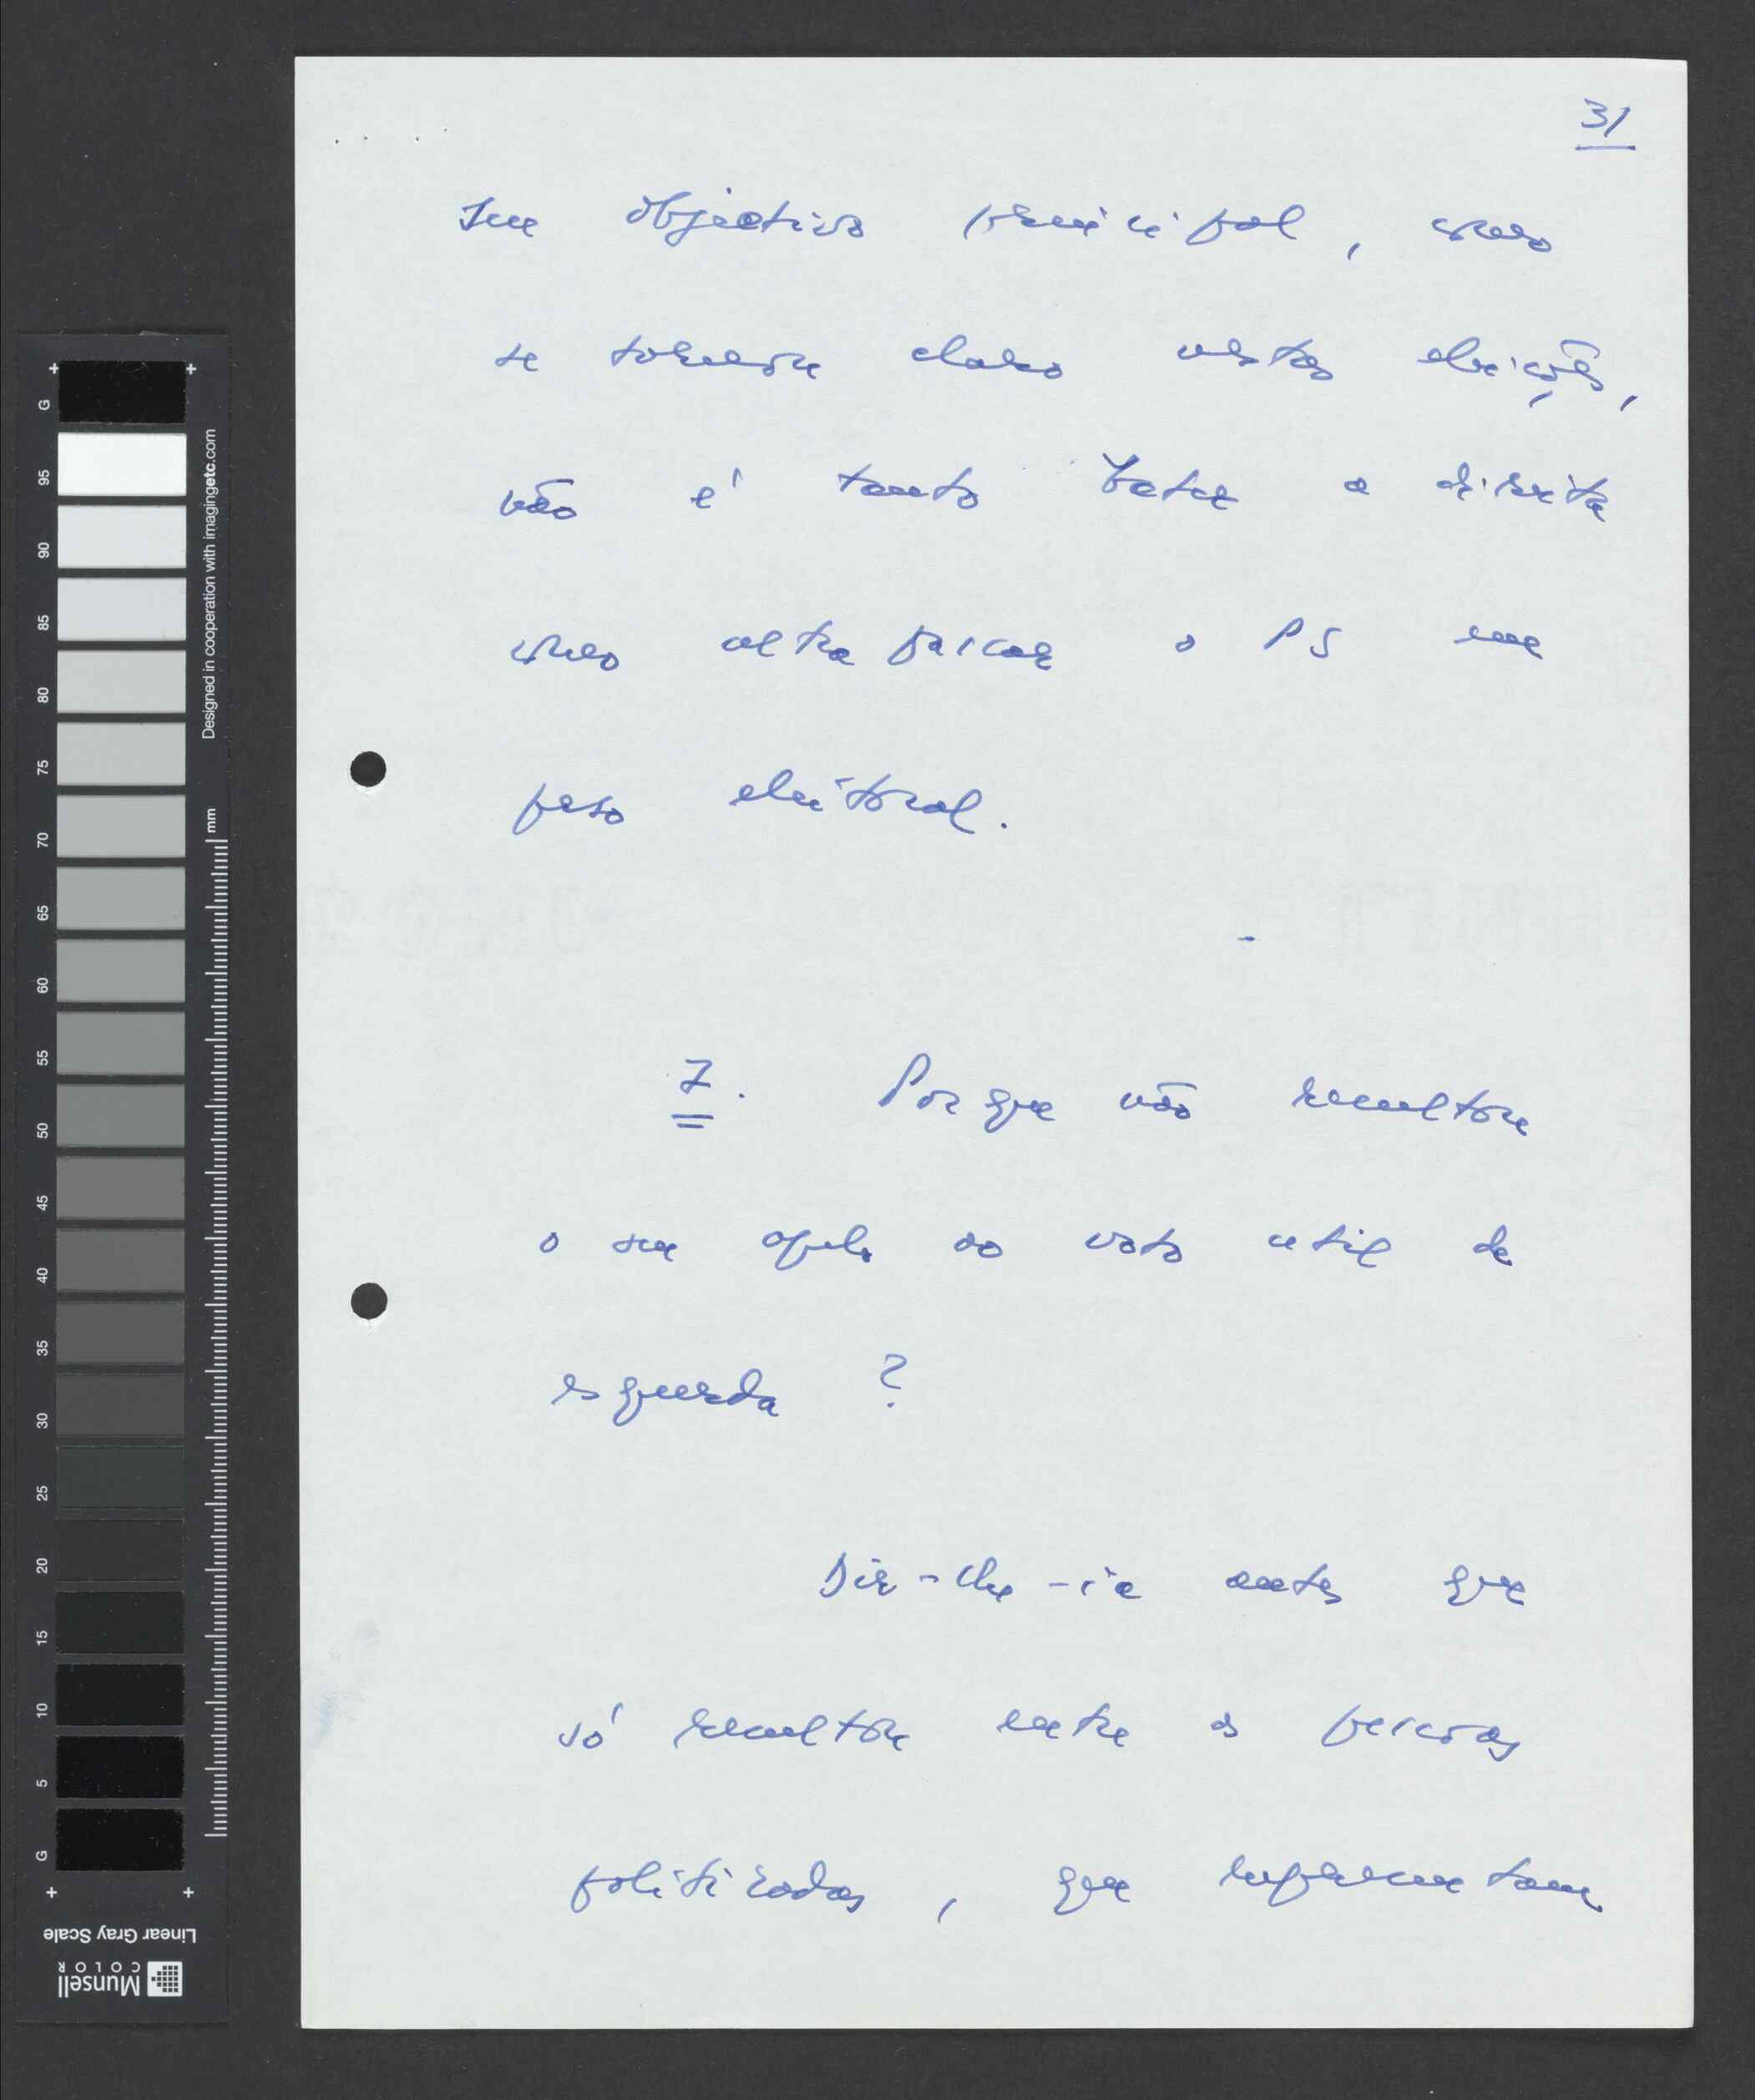 31
seu objectivo principal, como
se tornou claro nestas eleições,
não é tanto bater a direita
como ultrapassar o PS em
peso eleitoral.
7. Porque não resultou
o seu apelo ao voto util de
esquerda ?
Dir-lhe-ia antes que
só resultou entre as pessoas
politizadas, que representam
G
95
90
85
80
75
70
65
60
55
50
45
40
35
30
25
20
15
10
5
G
Designed in cooperation with imagingetc.com
mm
Linear Gray Scale
Munsell
COLOR